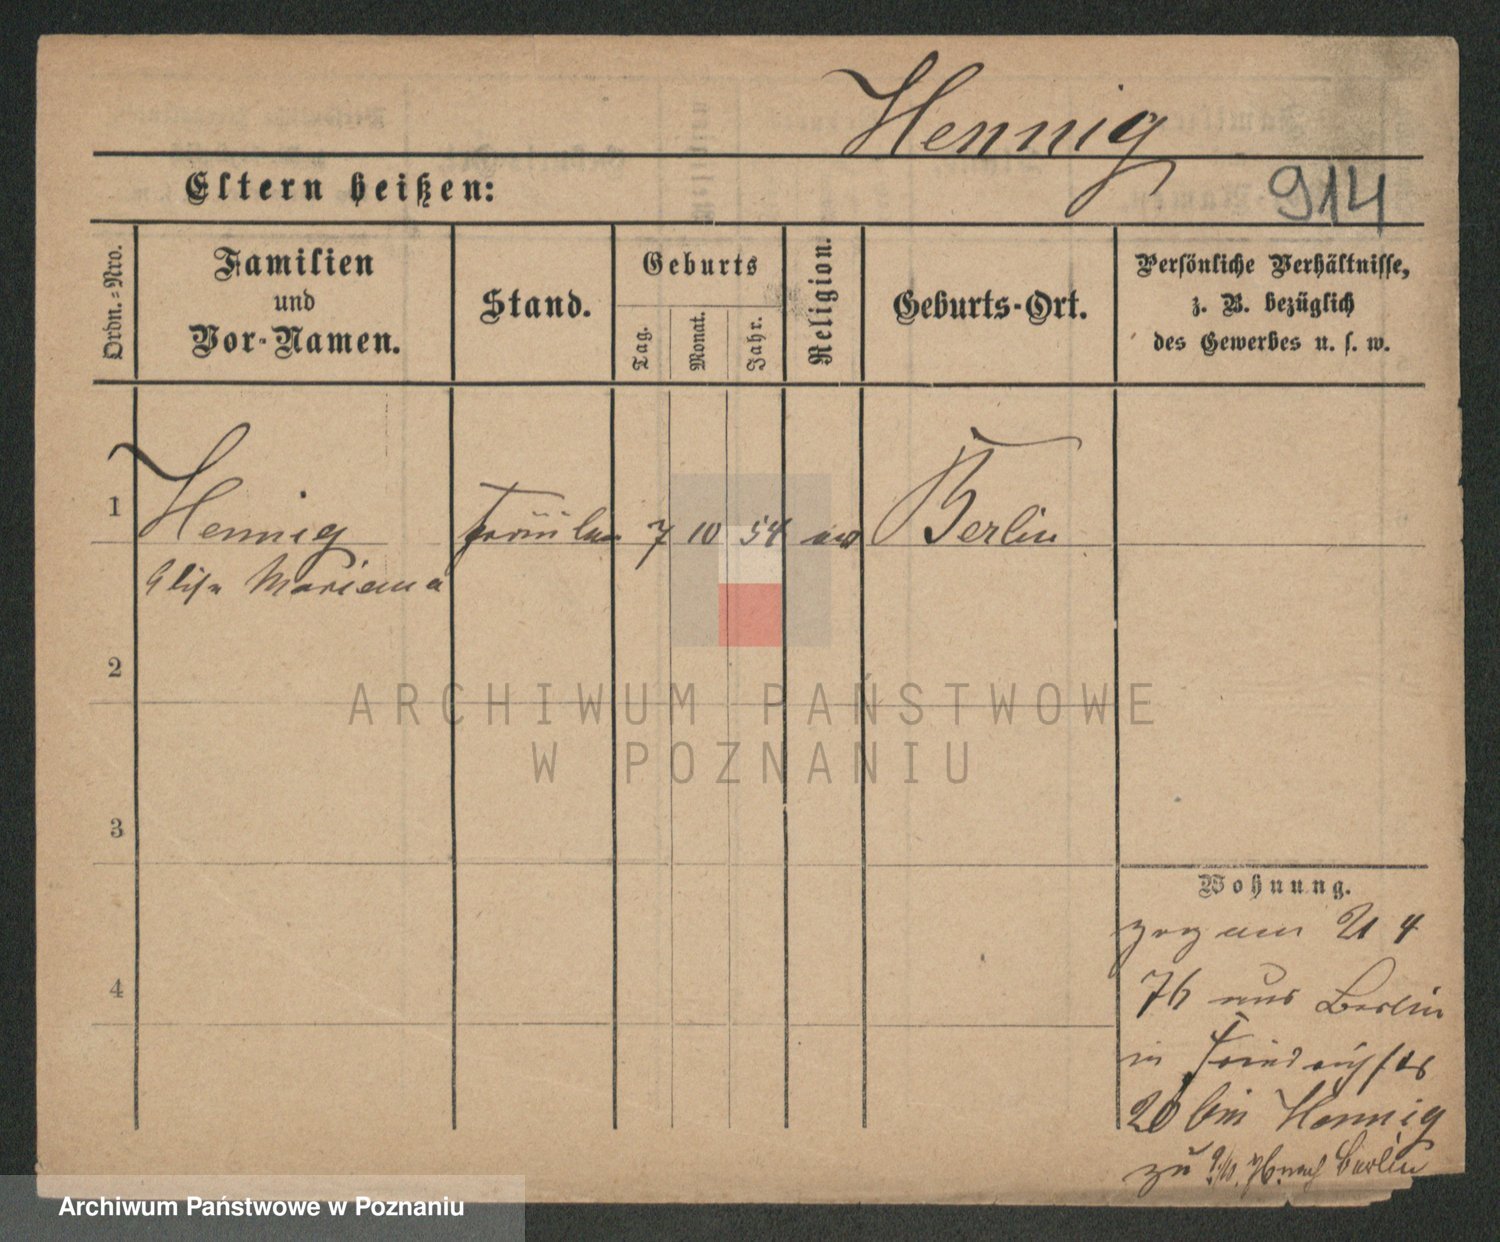 Hennig
Eltern heißen:
914
Ordn.-Nro.
Familien
und
Vor-Namen.
Stand.
Geburts
Tag.
Monat.
Jahr.
Religion.
Geburts-Ort.
Persönliche Verhältnisse,
z. B. bezüglich
des Gewerbes u. s. w.
1
Hennig
Elise Mariana
Fräulein
7
10
54
ev
Berlin
2
ARCHIWUM PAŃSTWOWE
W POZNANIU
3
Wohnung.
zog am 21 4
76 aus Berlin
in Friedrichstr
20 bei Hennig
zu 9/10. 76 nach Berlin
4
Archiwum Państwowe w Poznaniu